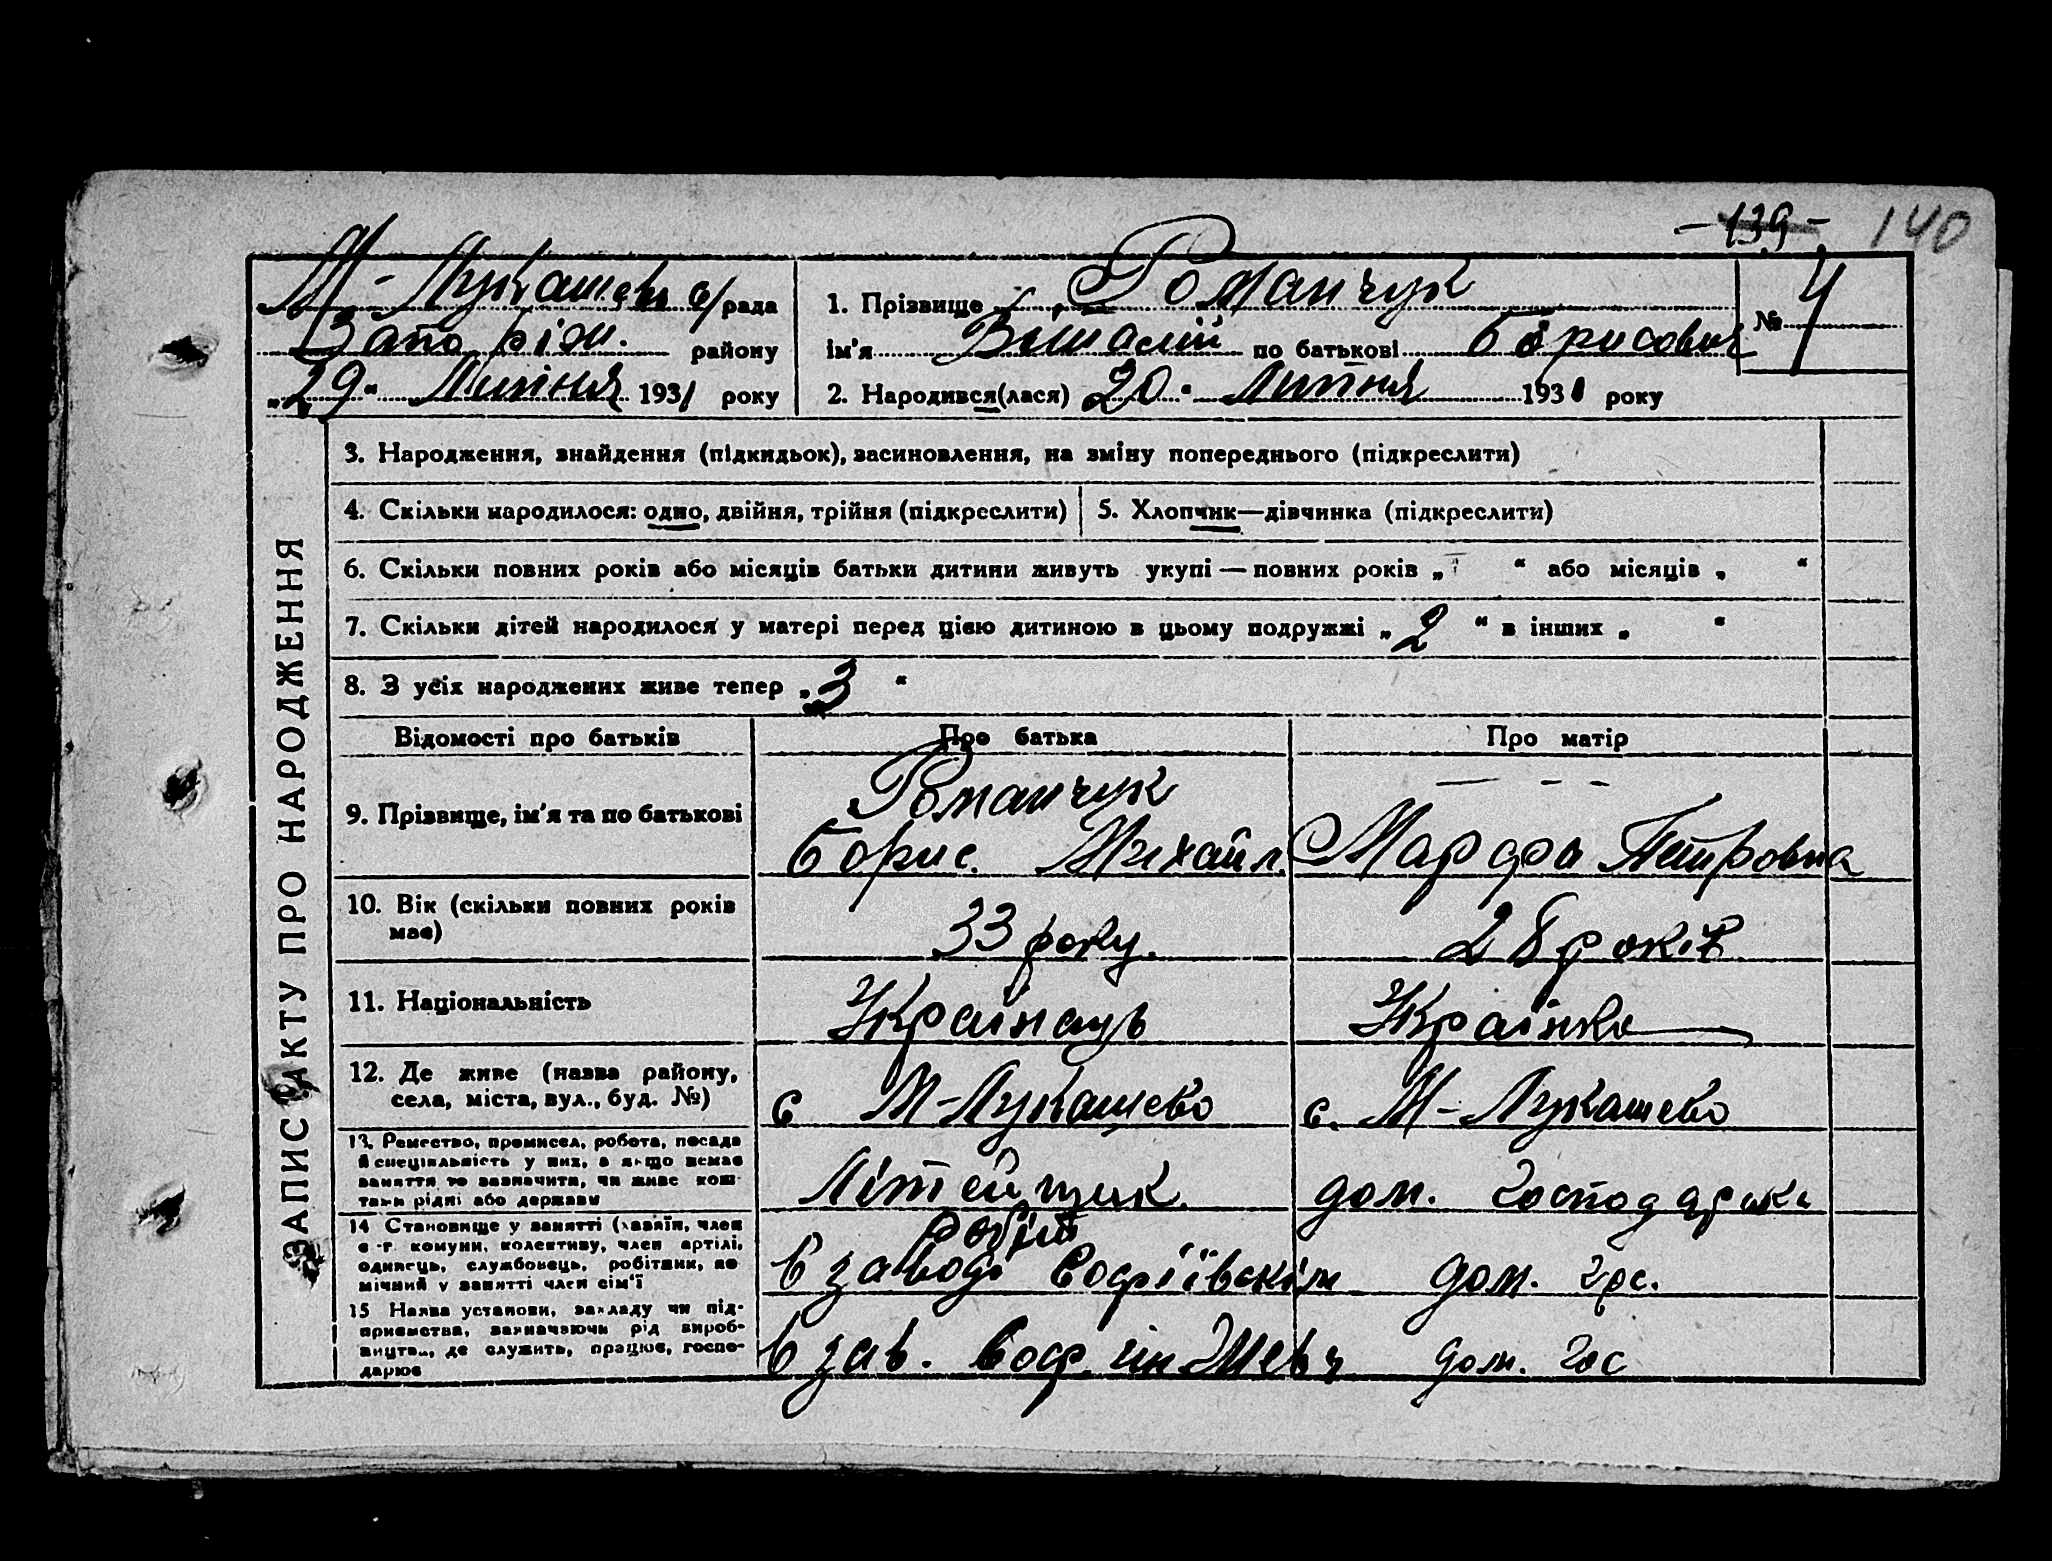 - 139 - 140
М-Лукашев с/рада
Запоріж. району
„29“ Липня 1931 року
1. Прізвище Романчук
ім'я Віталій по батькові Борисович
№ 4
2. Народився(лася) 20 “ Липня 1931 року
ЗАПИС АКТУ ПРО НАРОДЖЕННЯ
3. Народження, знайдення (підкидьок), засиновлення, на зміну попереднього (підкреслити)
4. Скільки народилося: одно, двійня, трійня (підкреслити)
5. Хлопчик—дівчинка (підкреслити)
6. Скільки повних років або місяців батьки дитини живуть укупі — повних років „ “ або місяців „ “
7. Скільки дітей народилося у матері перед цією дитиною в цьому подружжі „2“ в інших „ “
8. З усіх народжених живе тепер „3“
Відомості про батьків Про батька Про матір
9. Прізвище, ім'я та по батькові
Романчук
Борис. Михайл.
— - -
Марфа Петровна
10. Вік (скільки повних років
має)
33 року.
28 років
11. Національність
Українець
Українка
12. Де живе (назва району,
села, міста, вул., буд. №)
с М-Лукашево
с. М-Лукашево
13. Ремество, промисел, робота, посада
й спеціяльність у них, а якщо немає
заняття то зазначити, чи живе кош-
тами рідні або держави
Літейщик
дом. господарка
14 Становище у занятті (хазяїн, член
с-г. комуни, колективу, член артілі,
одинець, службовець, робітник, по
мічний у занятті член сім'ї
робіт
в заводі Софіївскім
дом. гос.
15 Назва установи, закладу чи під-
приємства, зазначаючи рід вироб-
ництва, де служить, працює, госпо-
дарює
в зав. Соф. ін
дом. гос